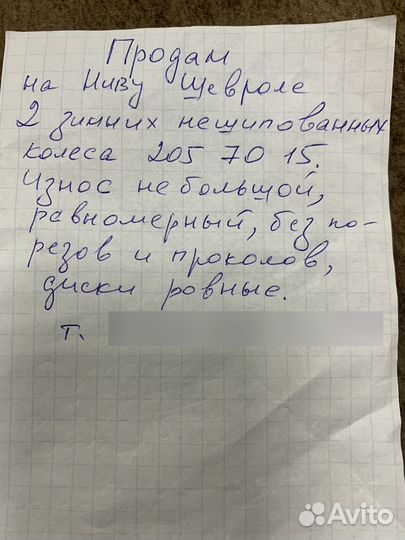 Продам
на Ниву Шевроле
2 зимних нешипованных
колеса 205 70 15.
Износ небольшой,
равномерный, без по-
резов и проколов,
диски ровные.
т.
Avito